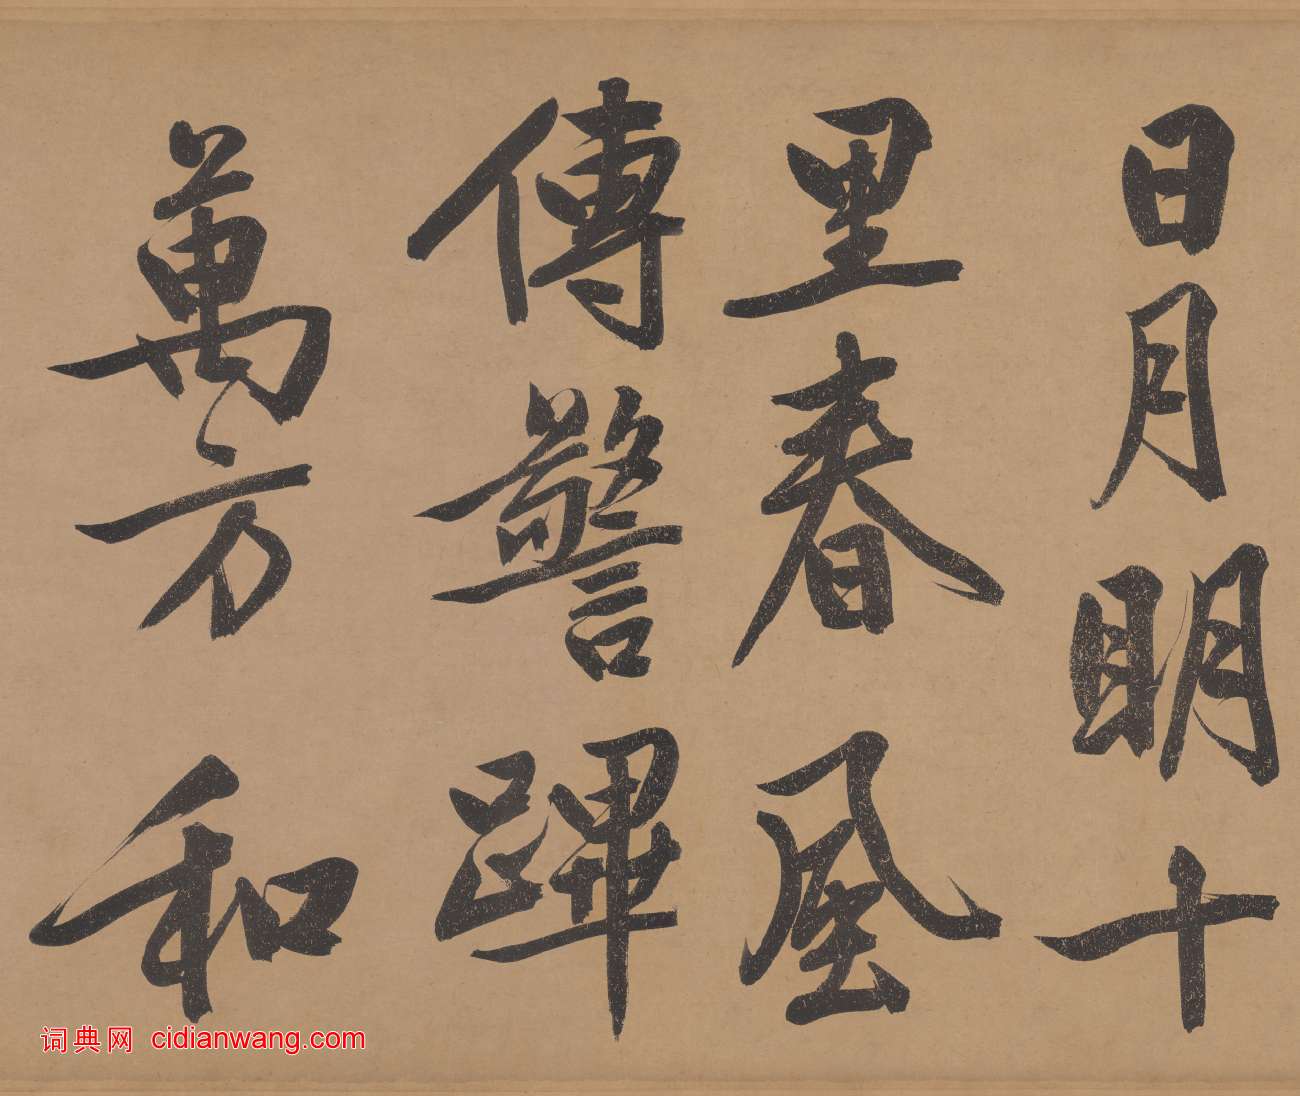 日月明十
里春風
傳警蹕
萬方和
词典网 cidianwang.com